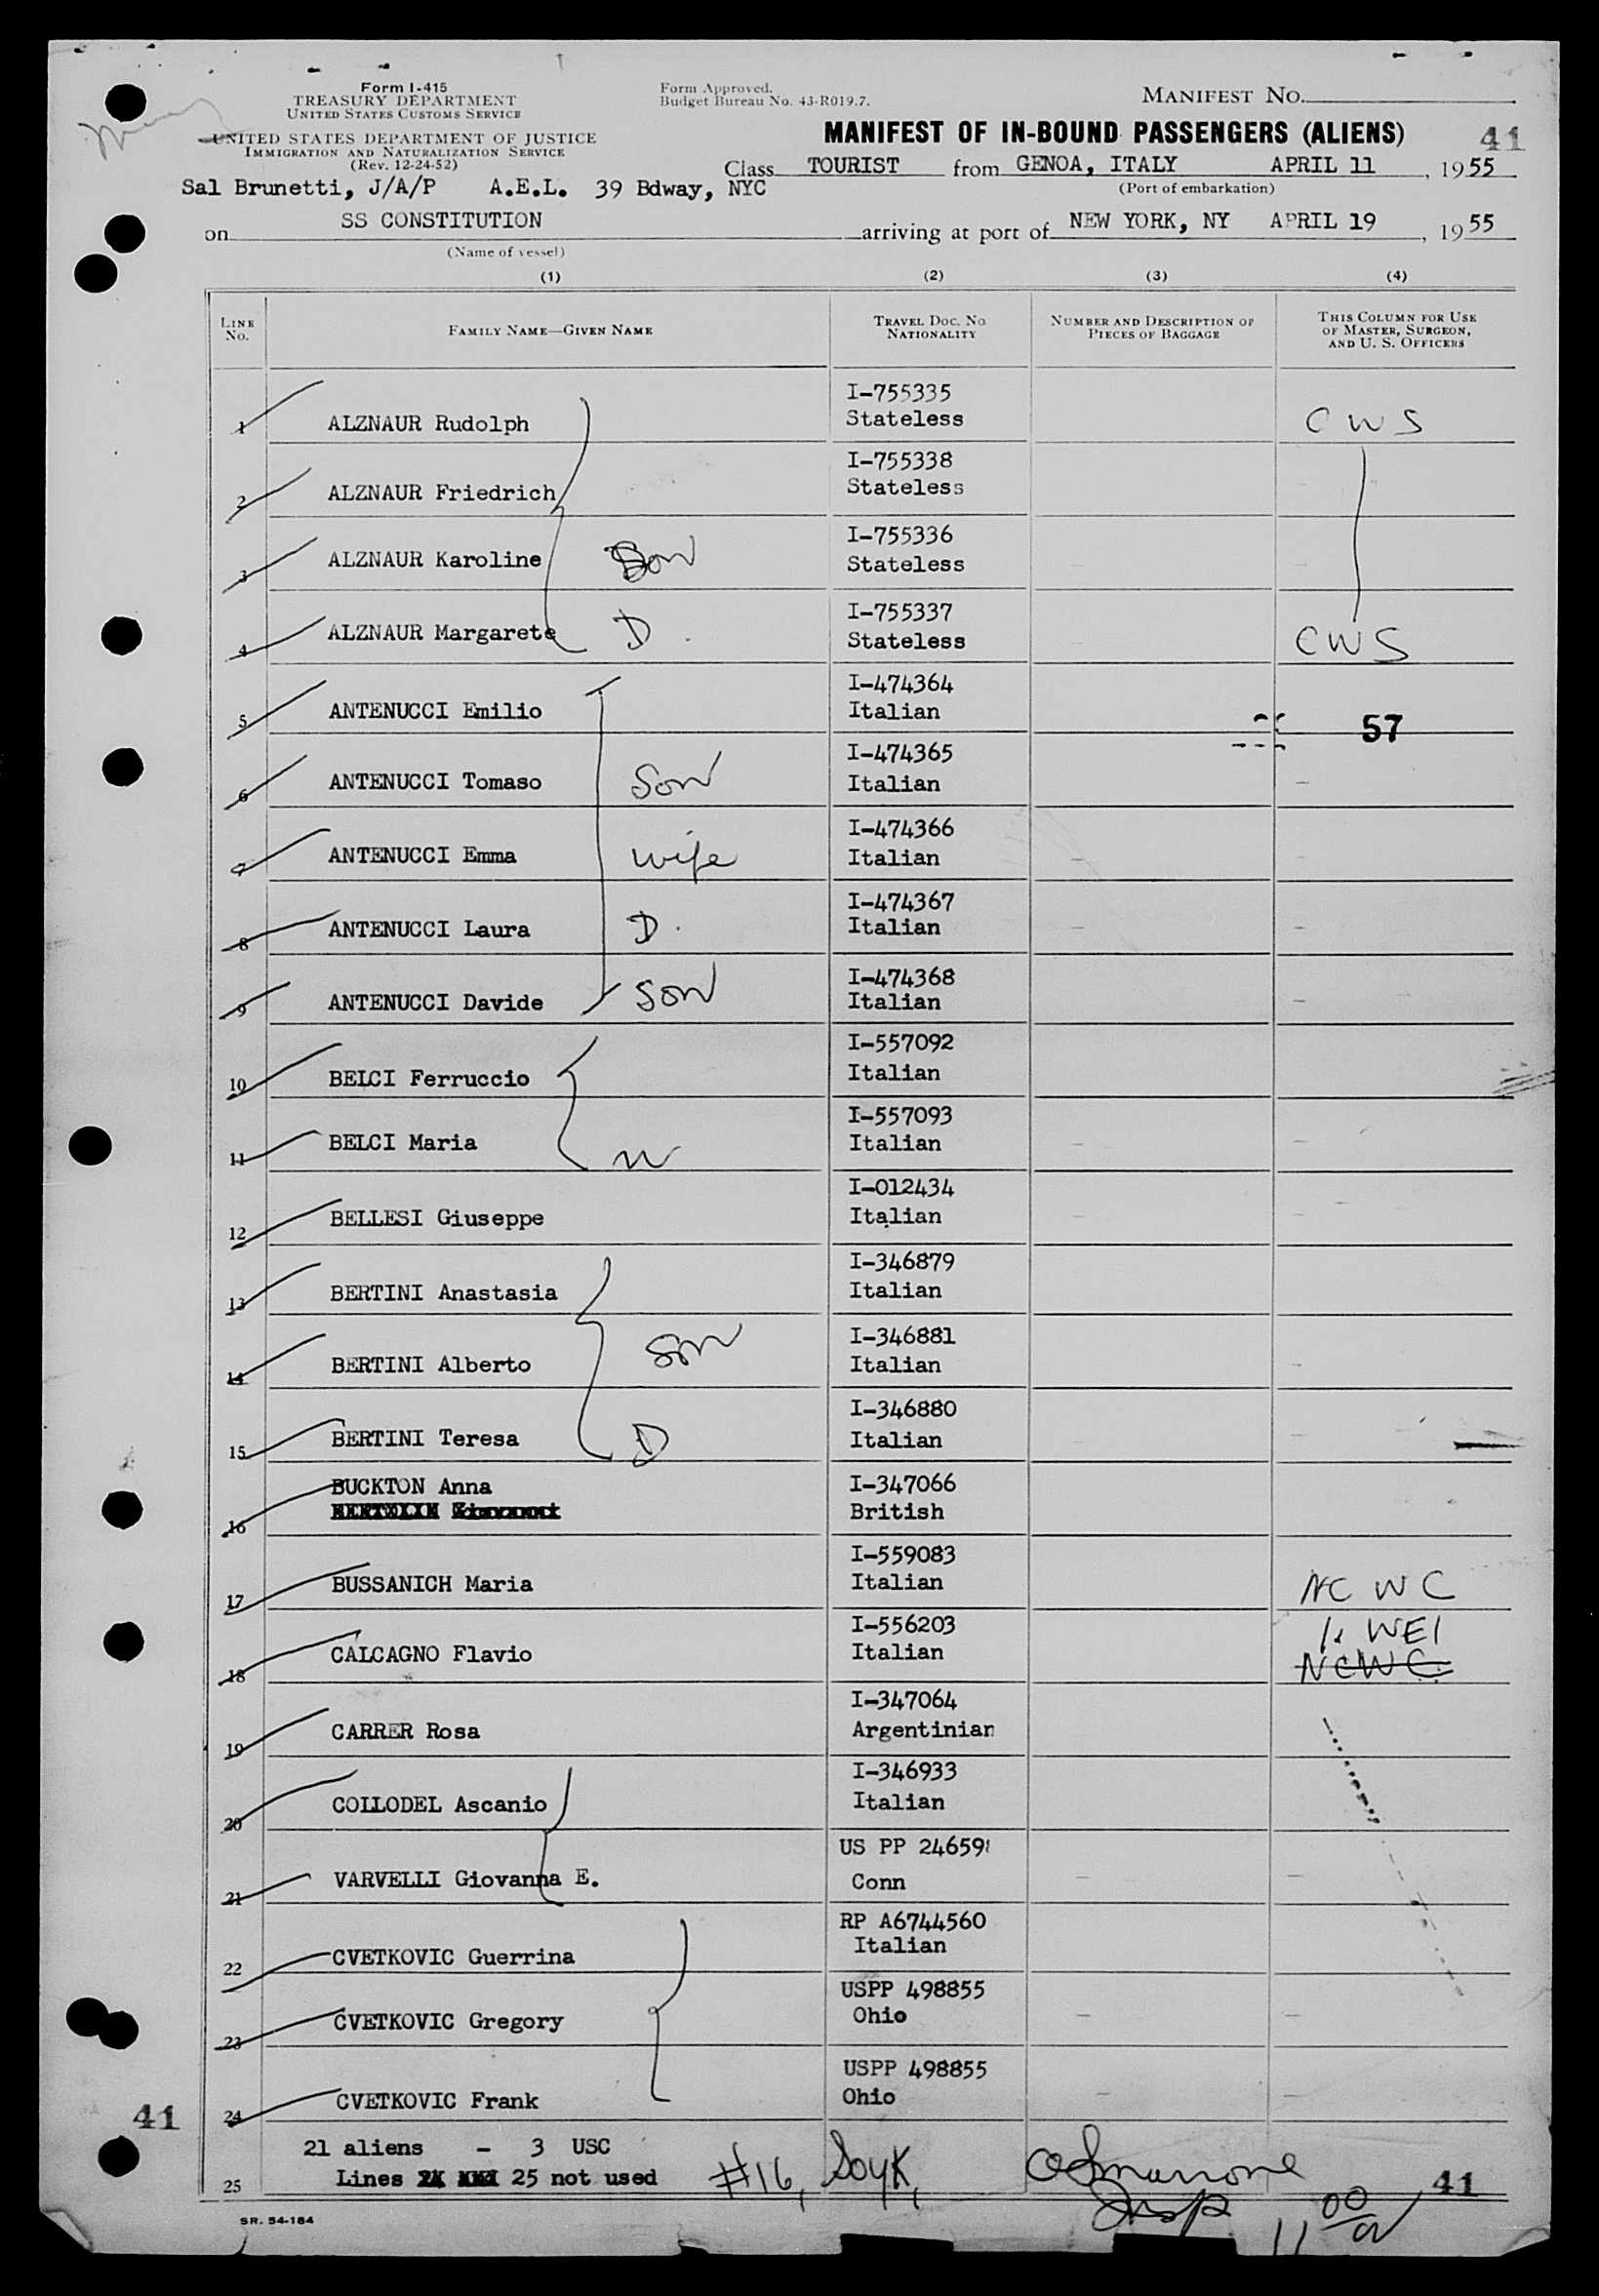 Form I-415
TREASURY DEPARTMENT
UNITED STATES CUSTOMS SERVICE
UNITED STATES DEPARTMENT OF JUSTICE
IMMIGRATION AND NATURALIZATION SERVICE
(Rev. 12-24-52)
Form Approved.
Budget Bureau No. 43-R019.7.
MANIFEST NO.
MANIFEST OF IN-BOUND PASSENGERS (ALIENS) 41
Class TOURIST from GENOA, ITALY APRIL 11, 1955
(Port of embarkation)
Sal Brunetti, J/A/P A.E.L. 39 Bdway, NYC
on SS CONSTITUTION arriving at port of NEW YORK, NY APRIL 19, 1955
(Name of vessel)
(1) (2) (3) (4)
LINE No.
FAMILY NAME—GIVEN NAME
TRAVEL DOC. No.
NATIONALITY
NUMBER AND DESCRIPTION OF
PIECES OF BAGGAGE
THIS COLUMN FOR USE
OF MASTER, SURGEON,
AND U. S. OFFICERS
I-755335
1 ALZNAUR Rudolph Stateless CWS
I-755338
2 ALZNAUR Friedrich Stateless
I-755336
3 ALZNAUR Karoline Son Stateless
I-755337
4 ALZNAUR Margarete D. Stateless CWS
I-474364
5 ANTENUCCI Emilio Italian 57
I-474365
6 ANTENUCCI Tomaso Son Italian
I-474366
7 ANTENUCCI Emma wife Italian
I-474367
8 ANTENUCCI Laura D. Italian
I-474368
9 ANTENUCCI Davide Son Italian
I-557092
10 BELCI Ferruccio Italian
I-557093
11 BELCI Maria W Italian
I-012434
12 BELLESI Giuseppe Italian
I-346879
13 BERTINI Anastasia Italian
I-346881
14 BERTINI Alberto Son Italian
I-346880
15 BERTINI Teresa D Italian
BUCKTON Anna I-347066
16 British
I-559083
17 BUSSANICH Maria Italian NCWC
I-556203 WEI
18 CALCAGNO Flavio Italian NCWC
I-347064
19 CARRER Rosa Argentinian
I-346933
20 COLLODEL Ascanio Italian
US PP 24659
21 VARVELLI Giovanna E. Conn
RP A6744560
22 CVETKOVIC Guerrina Italian
USPP 498855
23 CVETKOVIC Gregory Ohio
USPP 498855
24 CVETKOVIC Frank Ohio
41
21 aliens - 3 USC
25 Lines 25 not used #16, 41
Insp 11 00
SR. 54-184